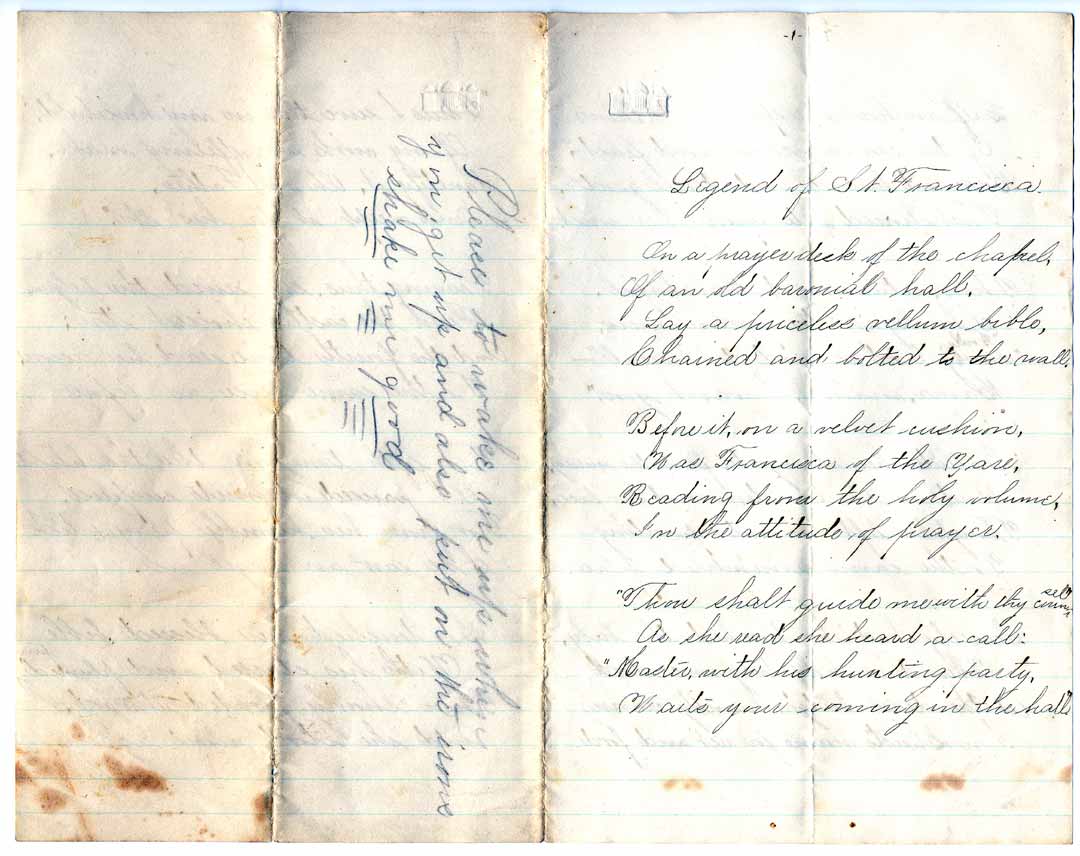 Please to wake me up when
you get up and also put on the irons
shake me good
-1-
Legend of St. Francisca.
On a prayer desk of the chapel,
Of an old baronial hall,
Lay a priceless vellum bible,
Chained and bolted to the wall.
Before it, on a velvet cushion,
Was Francisca of the Yare,
Reading from the holy volume,
In the attitude, of prayer.
"Thou shalt guide me with thy counsel"
As she read she heard a call:
"Master, with his hunting party,
Waits your coming in the hall"